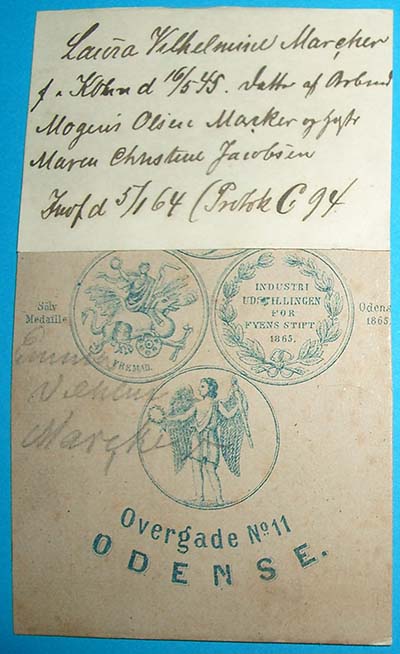 Laura Vilhelmine Marcher
f. Kbhvn d 16/5 45. Datter af Arbmd
Mogens Olsen Marker og Hustr
Maren Christine Jacobsen
Indf d 5/1 64 (Protok C 94.
Sölv
Medaille
FREMAD.
INDUSTRI
UDSTILLINGEN
FOR
FYENS STIFT
1865.
Odense
1865.
Vilhelm
Marcher
Overgade No 11
ODENSE.